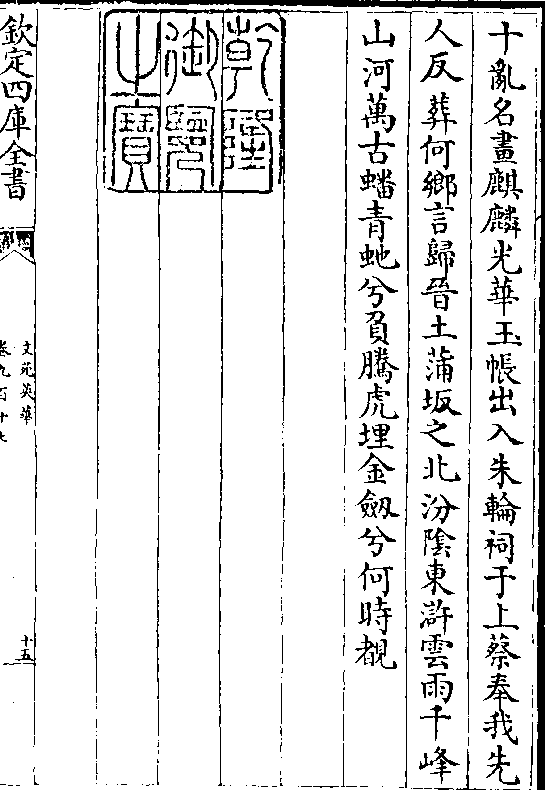 十亂名畫麒麟光華玉帳出入朱輪祠于上蔡奉我先
人反葬何鄉言歸晉土蒲坂之北汾陰東滸雲雨千峰
山河萬古蟠青虵兮負騰虎埋金劔兮何時覩
乾隆
御覽
之寶
欽定四庫全書
文苑英華
卷九百十七
十五